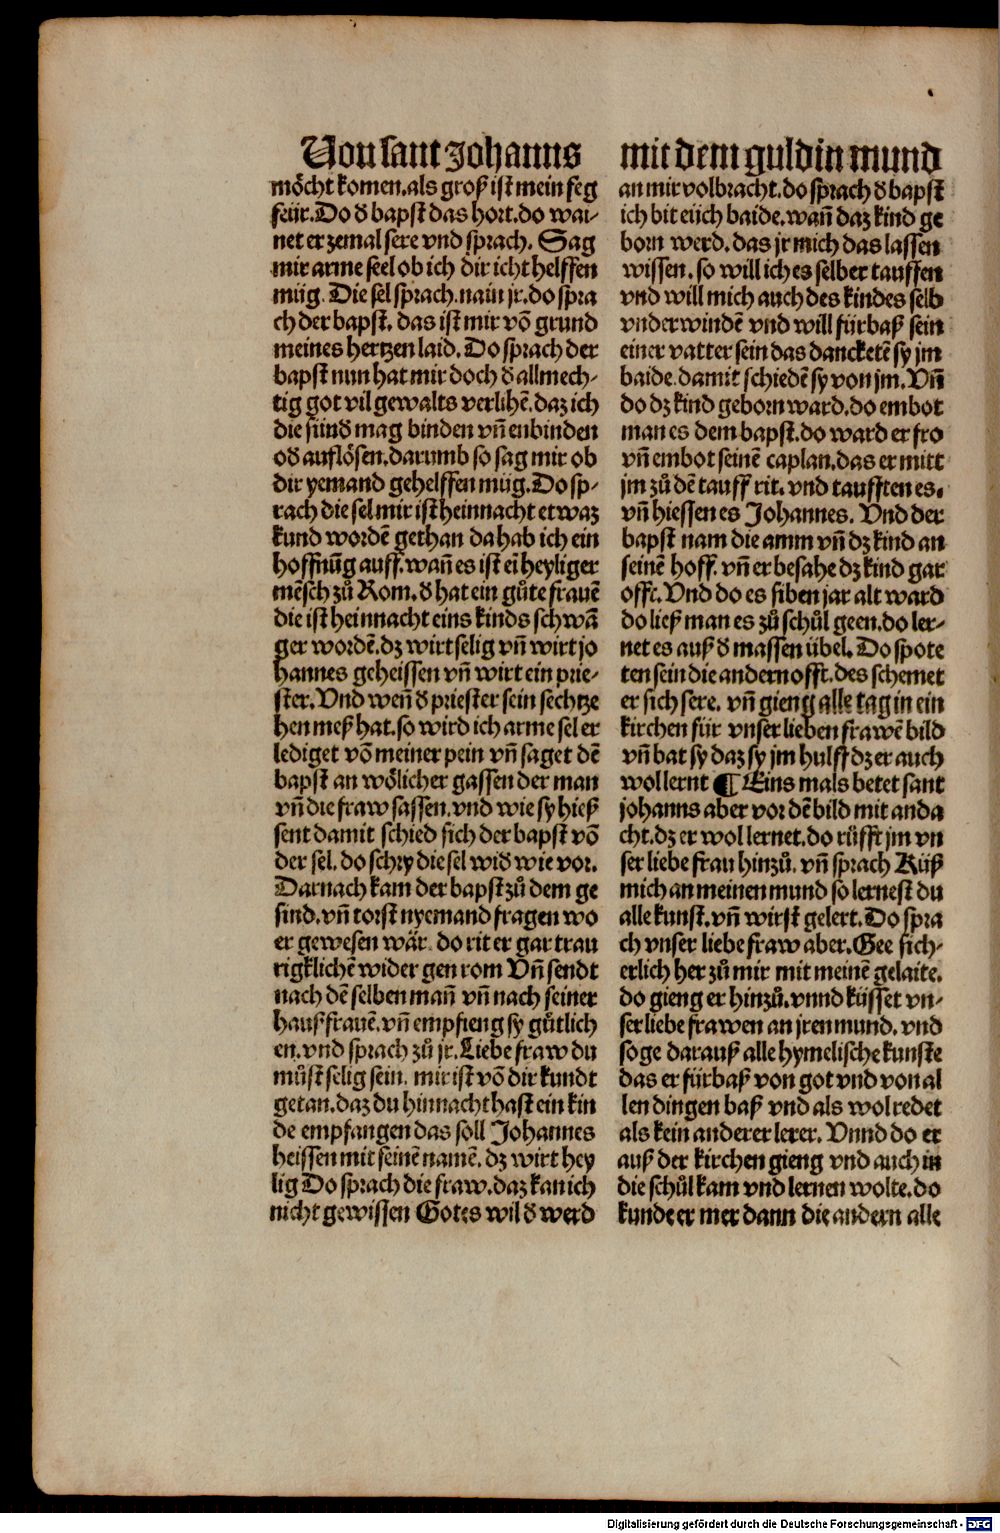 Von sant Johanns
möcht komen. als groß ist mein feg
feür. Do d̕ bapst das hort. do wai-
net er zemal sere vnd sprach. Sag
mir arme seel ob ich dir icht helffen
müg. Die sel sprach. nain jr. do spra
ch der bapst. das ist mir võ grund
meines hertzen laid. Do sprach der
bapst nun hat mir doch d̕ allmech-
tig got vil gewalts verlihẽ. daz ich
die sünd̕ mag binden vñ enbinden
od̕ auflösen. darumb so sag mir ob
dir yemand gehelffen müg. Do sp-
rach die sel mir ist heinnacht etwaz
kund wordẽ gethan da hab ich ein
hoffnũg auff. wañ es ist eĩ heyliger
mẽsch zů Rom. d̕ hat ein gůte frauẽ
die ist heinnacht eins kinds schwã
ger wordẽ. dz wirt selig vñ wirt jo
hannes geheissen vñ wirt ein prie-
ster. Vnd weñ d̕ priester sein sechtze
hen meß hat. so wird ich arme sel er
lediget võ meiner pein vñ saget dẽ
bapst an wölicher gassen der man
vñ die fraw sassen. vnd wie sy hieß
sent damit schied sich der bapst võ
der sel. do schry die sel wid̕ wie vor.
Darnach kam der bapst zů dem ge
sind. vñ torst nyemand fragen wo
er gewesen wär. do rit er gar trau
rigklichẽ wider gen rom Vñ sendt
nach dẽ selben mañ vñ nach seiner
haußfrauẽ. vñ empfieng sy gůtlich
en. vnd sprach zů jr. Liebe fraw du
můst selig sein. mir ist võ dir kundt
getan. daz du hinnacht hast ein kin
de empfangen das soll Johannes
heissen mit seinẽ namẽ. dz wirt hey
lig Do sprach die fraw. daz kan ich
nicht gewissen Gotes wil d̕ werd
mit dem guldin mund
an mir volbracht. do sprach d̕ bapst
ich bit eüch baide. wañ daz kind ge
born werd. das jr mich das lassen
wissen. so will ich es selber tauffen
vnd will mich auch des kindes selb
vnderwindẽ vnd will fürbaß sein
einer vatter sein das dancketẽ sy jm
baide. damit schiedẽ sy von jm. Vñ
do dz kind geborn ward. do embot
man es dem bapst. do ward er fro
vñ embot seinẽ caplan. das er mitt
jm zů dẽ tauff rit. vnd taufften es.
vñ hiessen es Johannes. Vnd der
bapst nam die amm vñ dz kind an
seinẽ hoff. vñ er besahe dz kind gar
offt. Vnd do es siben jar alt ward
do ließ man es zů schůl geen. do ler-
net es auß d̕ massen übel. Do spote
ten sein die andern offt. des schemet
er sich sere. vñ gieng alle tag in ein
kirchen für vnser lieben frawẽ bild
vñ bat sy daz sy jm hulff dz er auch
wol lernt ¶ Eins mals betet sant
johanns aber vor dẽ bild mit anda
cht. dz er wol lernet. do růfft jm vn
ser liebe frau hinzů. vñ sprach Küß
mich an meinen mund so lernest du
alle kunst. vñ wirst gelert. Do spra
ch vnser liebe fraw aber. Gee sich-
erlich her zů mir mit meinẽ gelaite.
do gieng er hinzů. vnnd küsset vn-
ser liebe frawen an jren mund. vnd
soge darauß alle hymelische kunste
das er fürbaß von got vnd von al
len dingen baß vnd als wol redet
als kein anderer lerer. Vnnd do er
auß der kirchen gieng vnd auch in
die schůl kam vnd lernen wolte. do
kunde er mer dann die andern alle
Digitalisierung gefördert durch die Deutsche Forschungsgemeinschaft - DFG